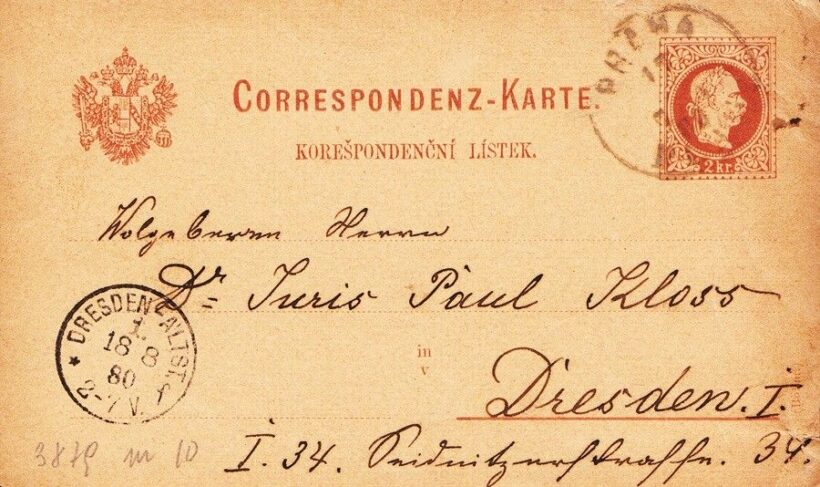 CORRESPONDENZ-KARTE.
KOREŠPONDENČNÍ LÍSTEK.
PRAHA
2 kr.
Wolgeborenen Herrn
Dr Juris Paul Kloss
in
v
Dresden. I.
I. 34. Seidnitzerstrasse. 34.
DRESDEN-ALTST.
1.
18 8
80
2-7 V.
3879 m 10